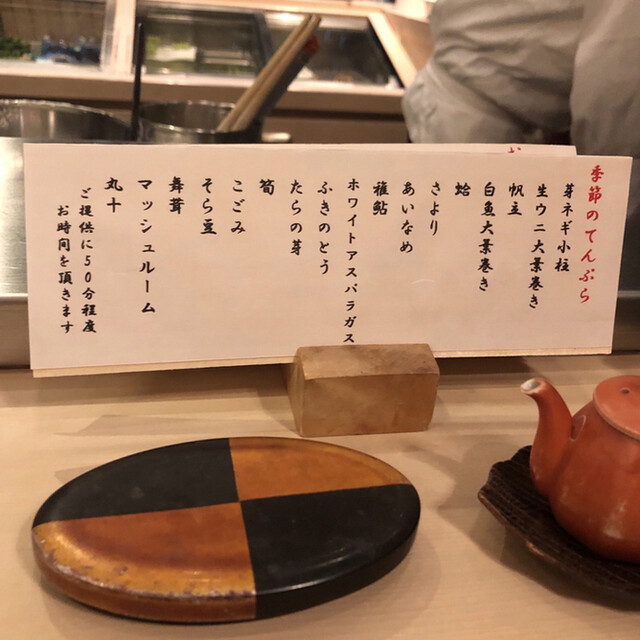 季節のてんぷら
芽ネギ小柱
生ウニ大葉巻き
帆立
白魚大葉巻き
蛤
さより
あいなめ
稚鮎
ホワイトアスパラガス
ふきのとう
たらの芽
筍
こごみ
そら豆
舞茸
マッシュルーム
丸十
ご提供に50分程度
お時間を頂きます